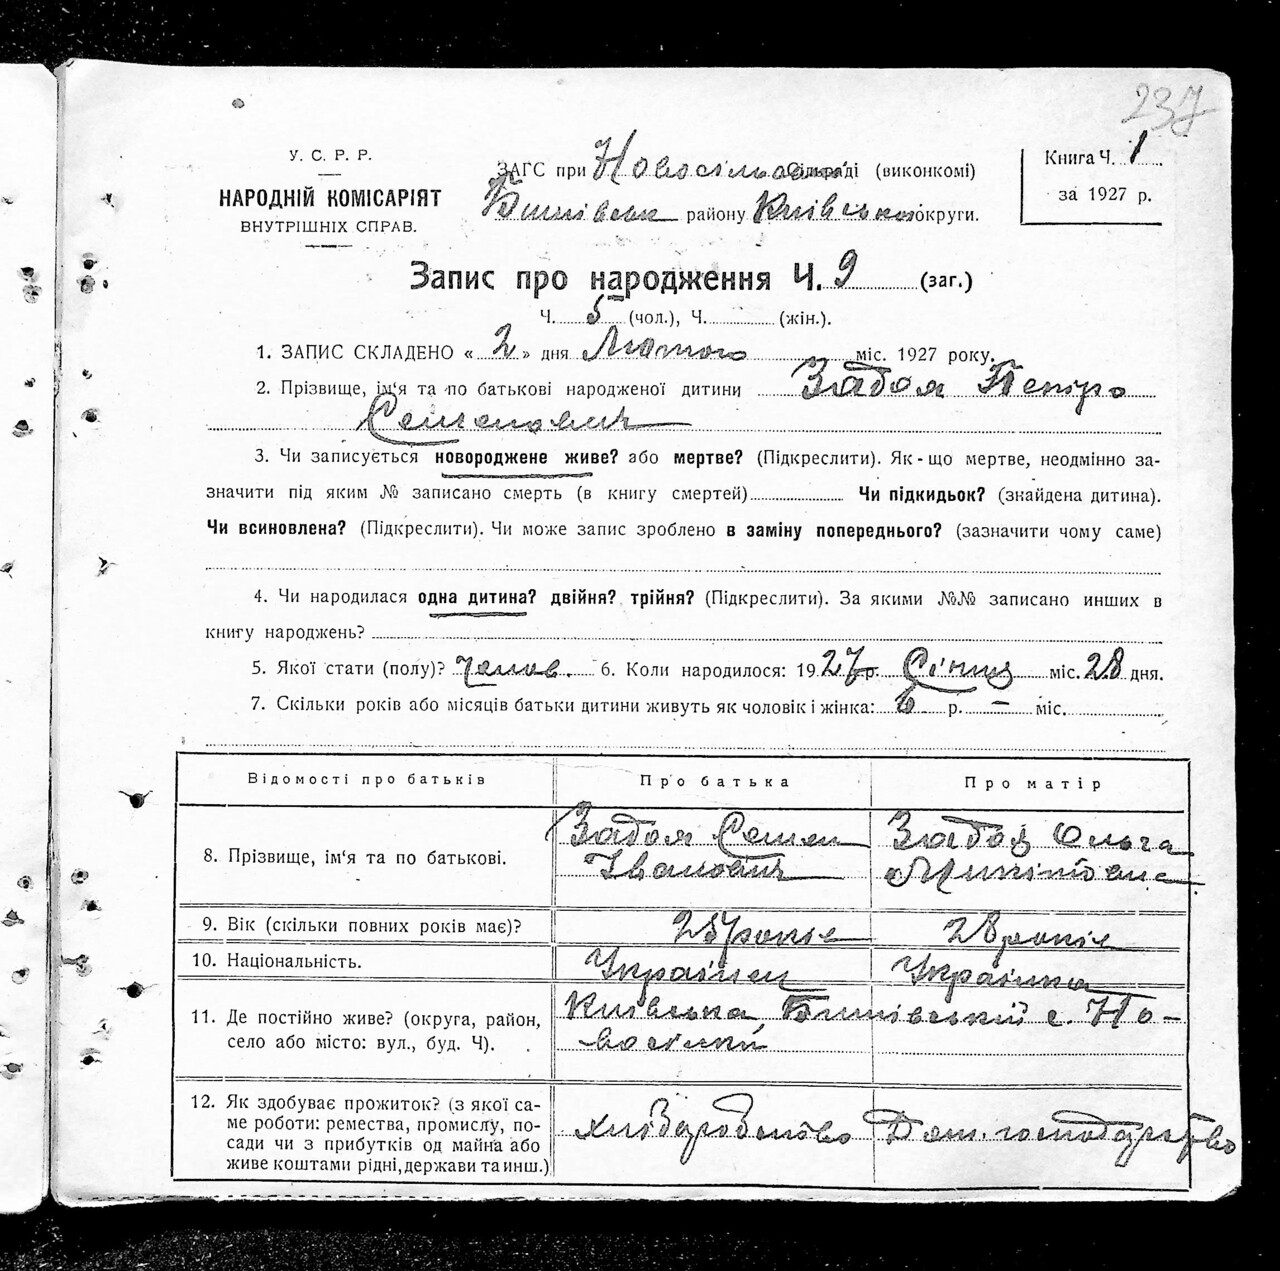 237
У. С. Р. Р.
НАРОДНІЙ КОМІСАРІЯТ
ВНУТРІШНІХ СПРАВ.
ЗАГС при Сільраді (виконкомі)
району Київської округи.
Книга Ч. 1
за 1927 р.
Запис про народження Ч. 9 (заг.)
Ч. 5 (чол.), Ч. (жін.).
1. ЗАПИС СКЛАДЕНО « 2 » дня Лютого міс. 1927 року.
2. Прізвище, ім'я та по батькові народженої дитини Забоя Петро
Семенович
3. Чи записується новороджене живе? або мертве? (Підкреслити). Як-що мертве, неодмінно за-
значити під яким № записано смерть (в книгу смертей) Чи підкидьок? (знайдена дитина).
Чи всиновлена? (Підкреслити). Чи може запис зроблено в заміну попереднього? (зазначити чому саме)
4. Чи народилася одна дитина? двійня? трійня? (Підкреслити). За якими №№ записано инших в
книгу народжень?
5. Якої стати (полу)? чолов. 6. Коли народилося: 1927 р. Січня міс. 28 дня.
7. Скільки років або місяців батьки дитини живуть як чоловік і жінка: 6 р. – міс.
Відомості про батьків Про батька Про матір
8. Прізвище, ім'я та по батькові. Забоя Семен Забоя Ольга
Іванович
9. Вік (скільки повних років має)? років 28 років
10. Національність. Українец Українка
11. Де постійно живе? (округа, район,
село або місто: вул., буд. Ч). Київська, с. Но-
восілки
12. Як здобуває прожиток? (з якої са-
ме роботи: ремества, промислу, по-
сади чи з прибутків од майна або
живе коштами рідні, держави та инш.) хліборобство Дом. господарство